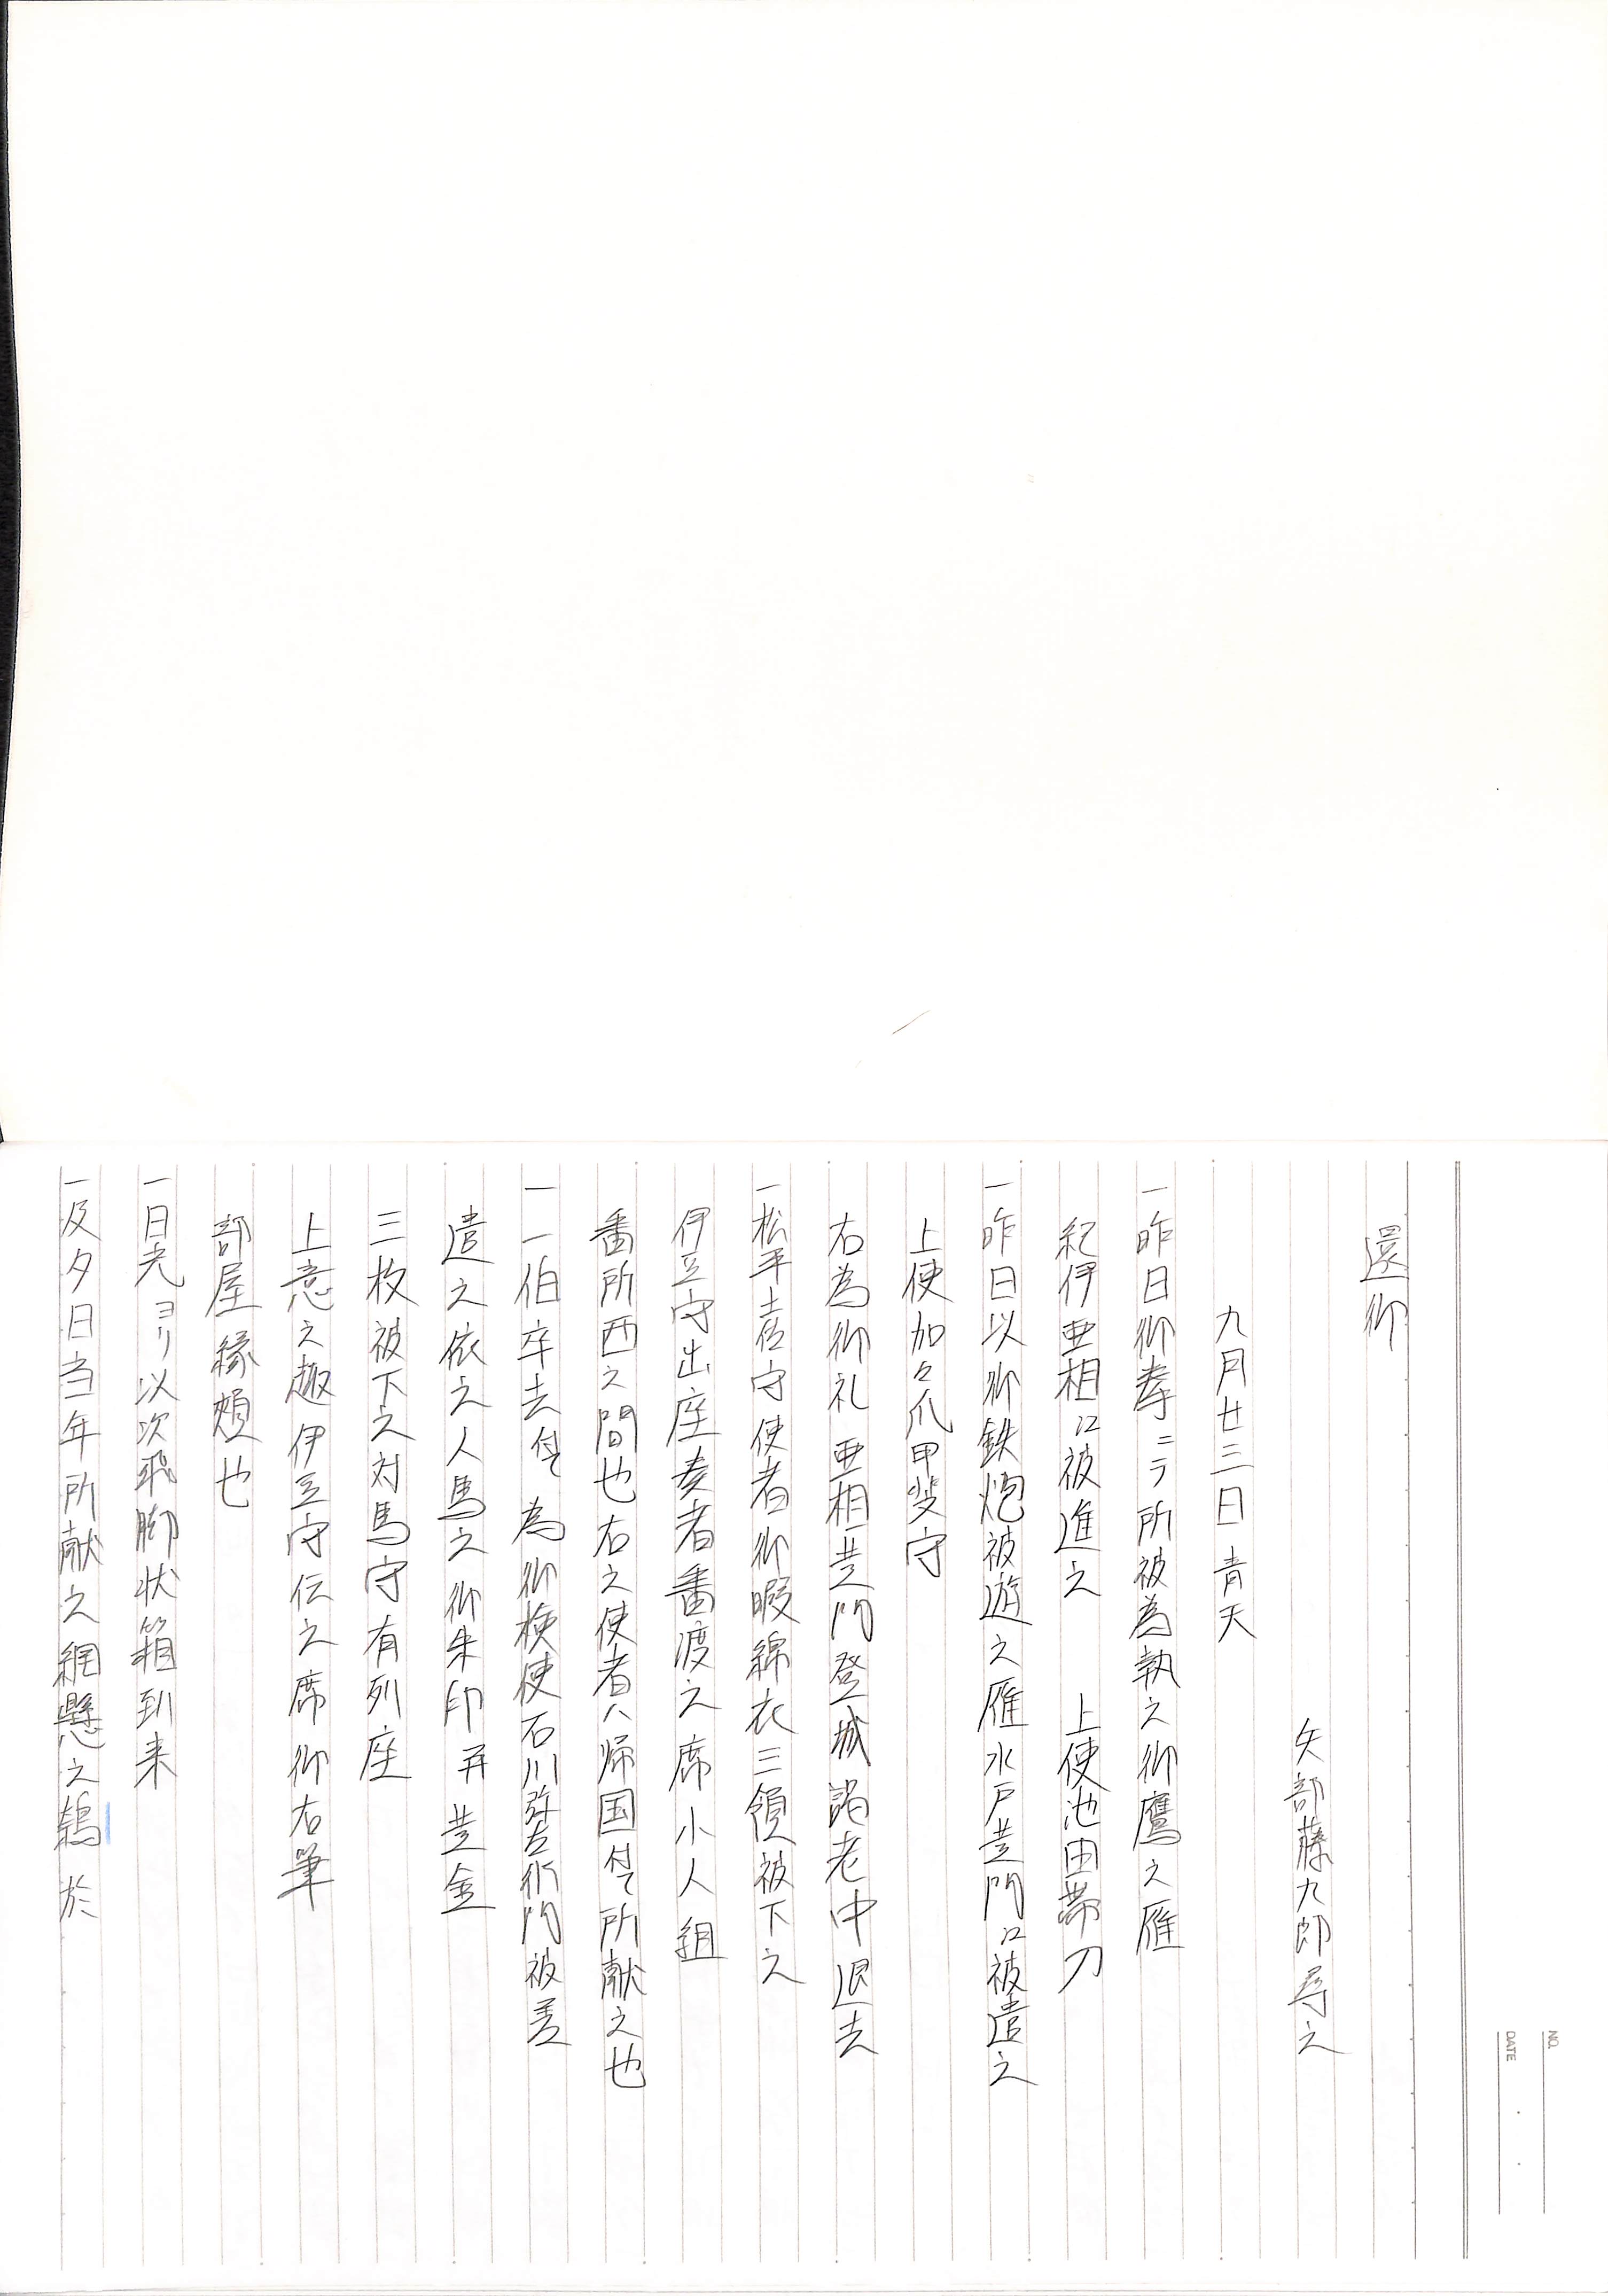 還御
矢部藤九郎尋之
九月廿三日 青天
一昨日御拳ニテ所被為執之御鷹之雁
紀伊亜相江被進之 上使池田帯刀
一昨日以御鉄炮被遊之雁水戸黄門江被遣之
上使加々爪甲斐守
右為御礼亜相黄門登城謁老中退去
一松平土佐守使者御暇綿衣三領被下之
伊豆守出座奏者番渡之席小人組
番所西之間也右之使者ハ帰国付而所献之也
一一伯卒去付而為御検使石川弥左衛門被差
遣之依之人馬之御朱印并黄金
三枚被下之対馬守有列座
上意之趣伊豆守伝之席御右筆
部屋縁頬也
一日光ヨリ以次飛脚状箱到来
一及夕日当年所献之網懸之鶴於
NO.
DATE ・ ・